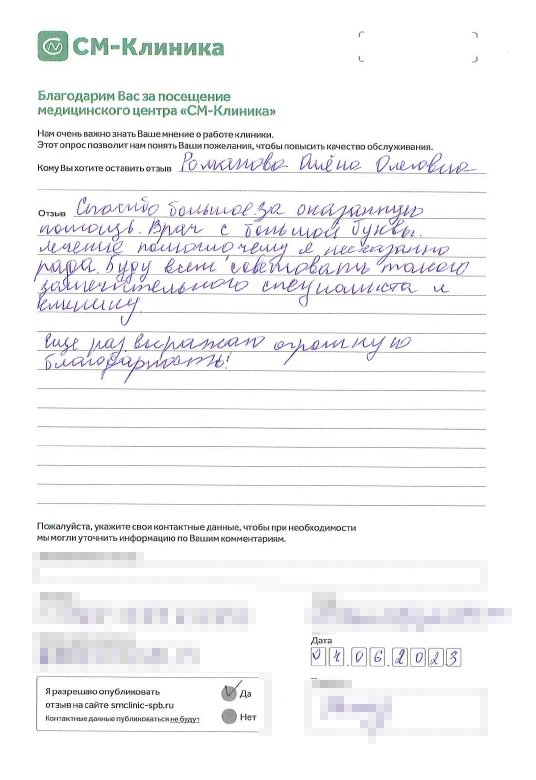 СМ-Клиника
Благодарим Вас за посещение
медицинского центра «СМ-Клиника»
Нам очень важно знать Ваше мнение о работе клиники.
Этот опрос позволит нам понять Ваши пожелания, чтобы повысить качество обслуживания.
Кому Вы хотите оставить отзыв Романова Алёна Олеговна
Отзыв Спасибо большое за оказанную
помощь. Врач с большой буквы.
лечение помогло чему я несказанно
рада. Буду всем советовать такого
замечательного специалиста и
клинику.
Еще раз выражаю огромную
благодарность!
Пожалуйста, укажите свои контактные данные, чтобы при необходимости
мы могли уточнить информацию по Вашим комментариям.
Дата
04.06.2023
Я разрешаю опубликовать
отзыв на сайте smclinic-spb.ru
Контактные данные публиковаться не будут
Да
Нет